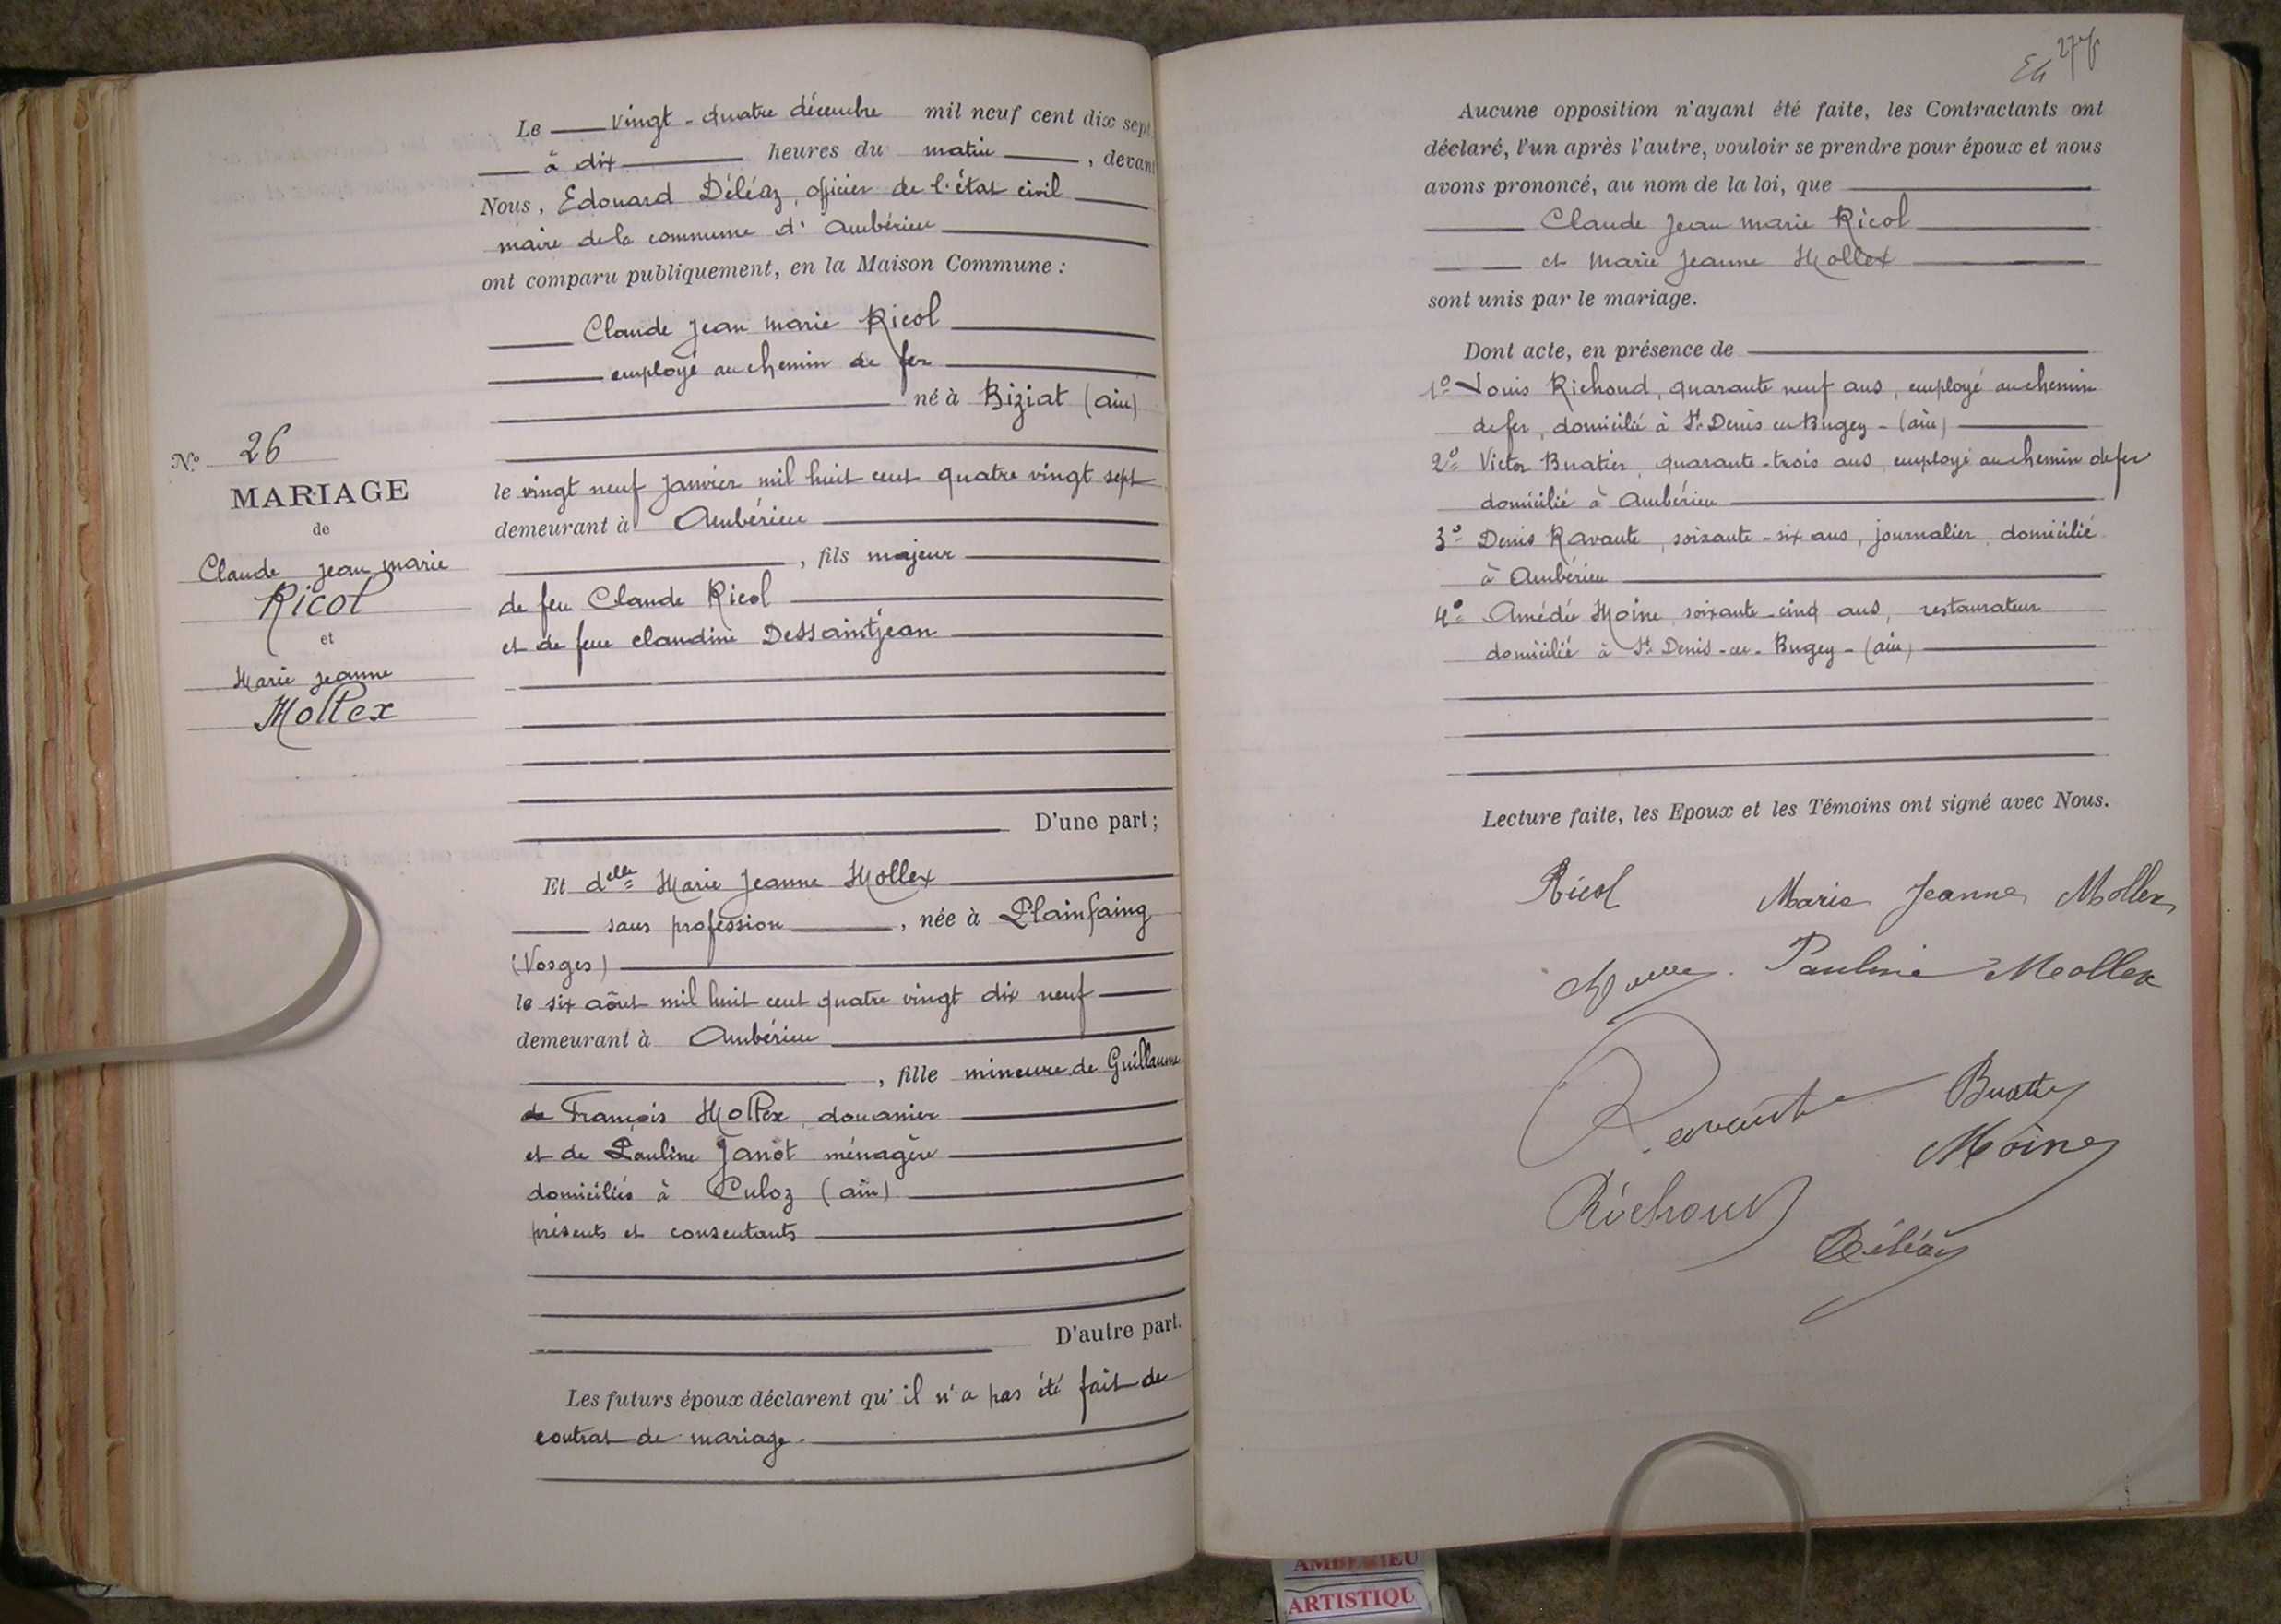 N° 26
MARIAGE
de
Claude Jean Marie
Ricol
et
Marie Jeanne
Mollex
Le vingt-quatre décembre mil neuf cent dix sept
à dix heures du matin, devant
Nous, Edouard Déléaz, officier de l'état civil
maire de la commune d'Ambérieu
ont comparu publiquement, en la Maison Commune :
Claude Jean Marie Ricol
employé au chemin de fer
né à Biziat (Ain)
le vingt neuf Janvier mil huit cent quatre vingt sept
demeurant à Ambérieu
, fils majeur
de feu Claude Ricol
et de feue Claudine Dessaintjean
D'une part ;
Et delle Marie Jeanne Mollex
sans profession, née à Plainfaing
(Vosges)
le six août mil huit cent quatre vingt dix neuf
demeurant à Ambérieu
, fille mineure de Guillaume
de François Mollex, douanier
et de Pauline Janot ménagère
domiciliés à Culoz (Ain)
présents et consentants
D'autre part.
Les futurs époux déclarent qu'il n'a pas été fait de
contrat de mariage.
Aucune opposition n'ayant été faite, les Contractants ont
déclaré, l'un après l'autre, vouloir se prendre pour époux et nous
avons prononcé, au nom de la loi, que
Claude Jean Marie Ricol
et Marie Jeanne Mollex
sont unis par le mariage.
Dont acte, en présence de
1° Louis Richoud, quarante neuf ans, employé au chemin
de fer, domicilié à St Denis en Bugey - (Ain)
2° Victor Buatier, quarante-trois ans, employé au chemin de fer
domicilié à Ambérieu
3° Denis Ravaute, soixante-six ans, journalier, domicilié
à Ambérieu
4° Amédée Moine, soixante-cinq ans, restaurateur
domicilié à St Denis-en-Bugey - (Ain)
Lecture faite, les Epoux et les Témoins ont signé avec Nous.
Ricol Marie Jeanne Mollex
Pauline Mollex
Ravaute
Moine
Richoud
Déléaz
AMBERIEU
ARTISTIQU